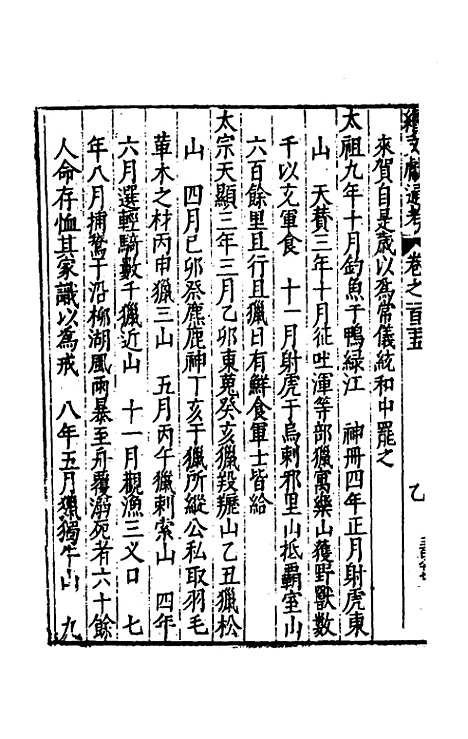 續文獻通考 卷之一百五 乙
來賀自是歲以為常儀統和中罷之
太祖九年十月釣魚于鴨緑江 神冊四年正月射虎東
山 天贊三年十月征吐渾等部獵寓樂山獲野獸數
千以充軍食 十一月射虎于烏剌邪里山抵霸室山
六百餘里且行且獵日有鮮食軍士皆給
太宗天顯三年三月乙卯東蒐癸亥獵羖䍽山乙丑獵松
山 四月巳卯祭麃鹿神丁亥于獵所縱公私取羽毛
革木之材丙申獵三山 五月丙午獵剌索山 四年
六月選輕騎數千獵近山 十一月觀漁三义口 七
年八月捕鵞于沿柳湖風雨暴至舟覆溺死者六十餘
人命存恤其家識以為戒 八年五月獵獨牛山 九